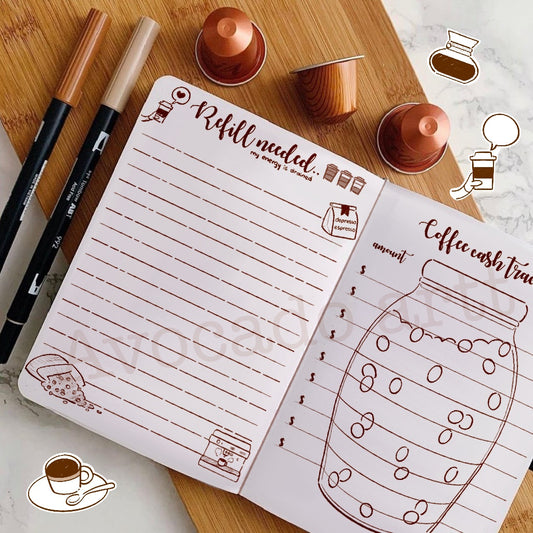 Refill needed..
my energy is drained
depresso
espresso
Coffee cash trac
amount
$
$
$
$
$
$
$
$
Avocado artt
ABT
992